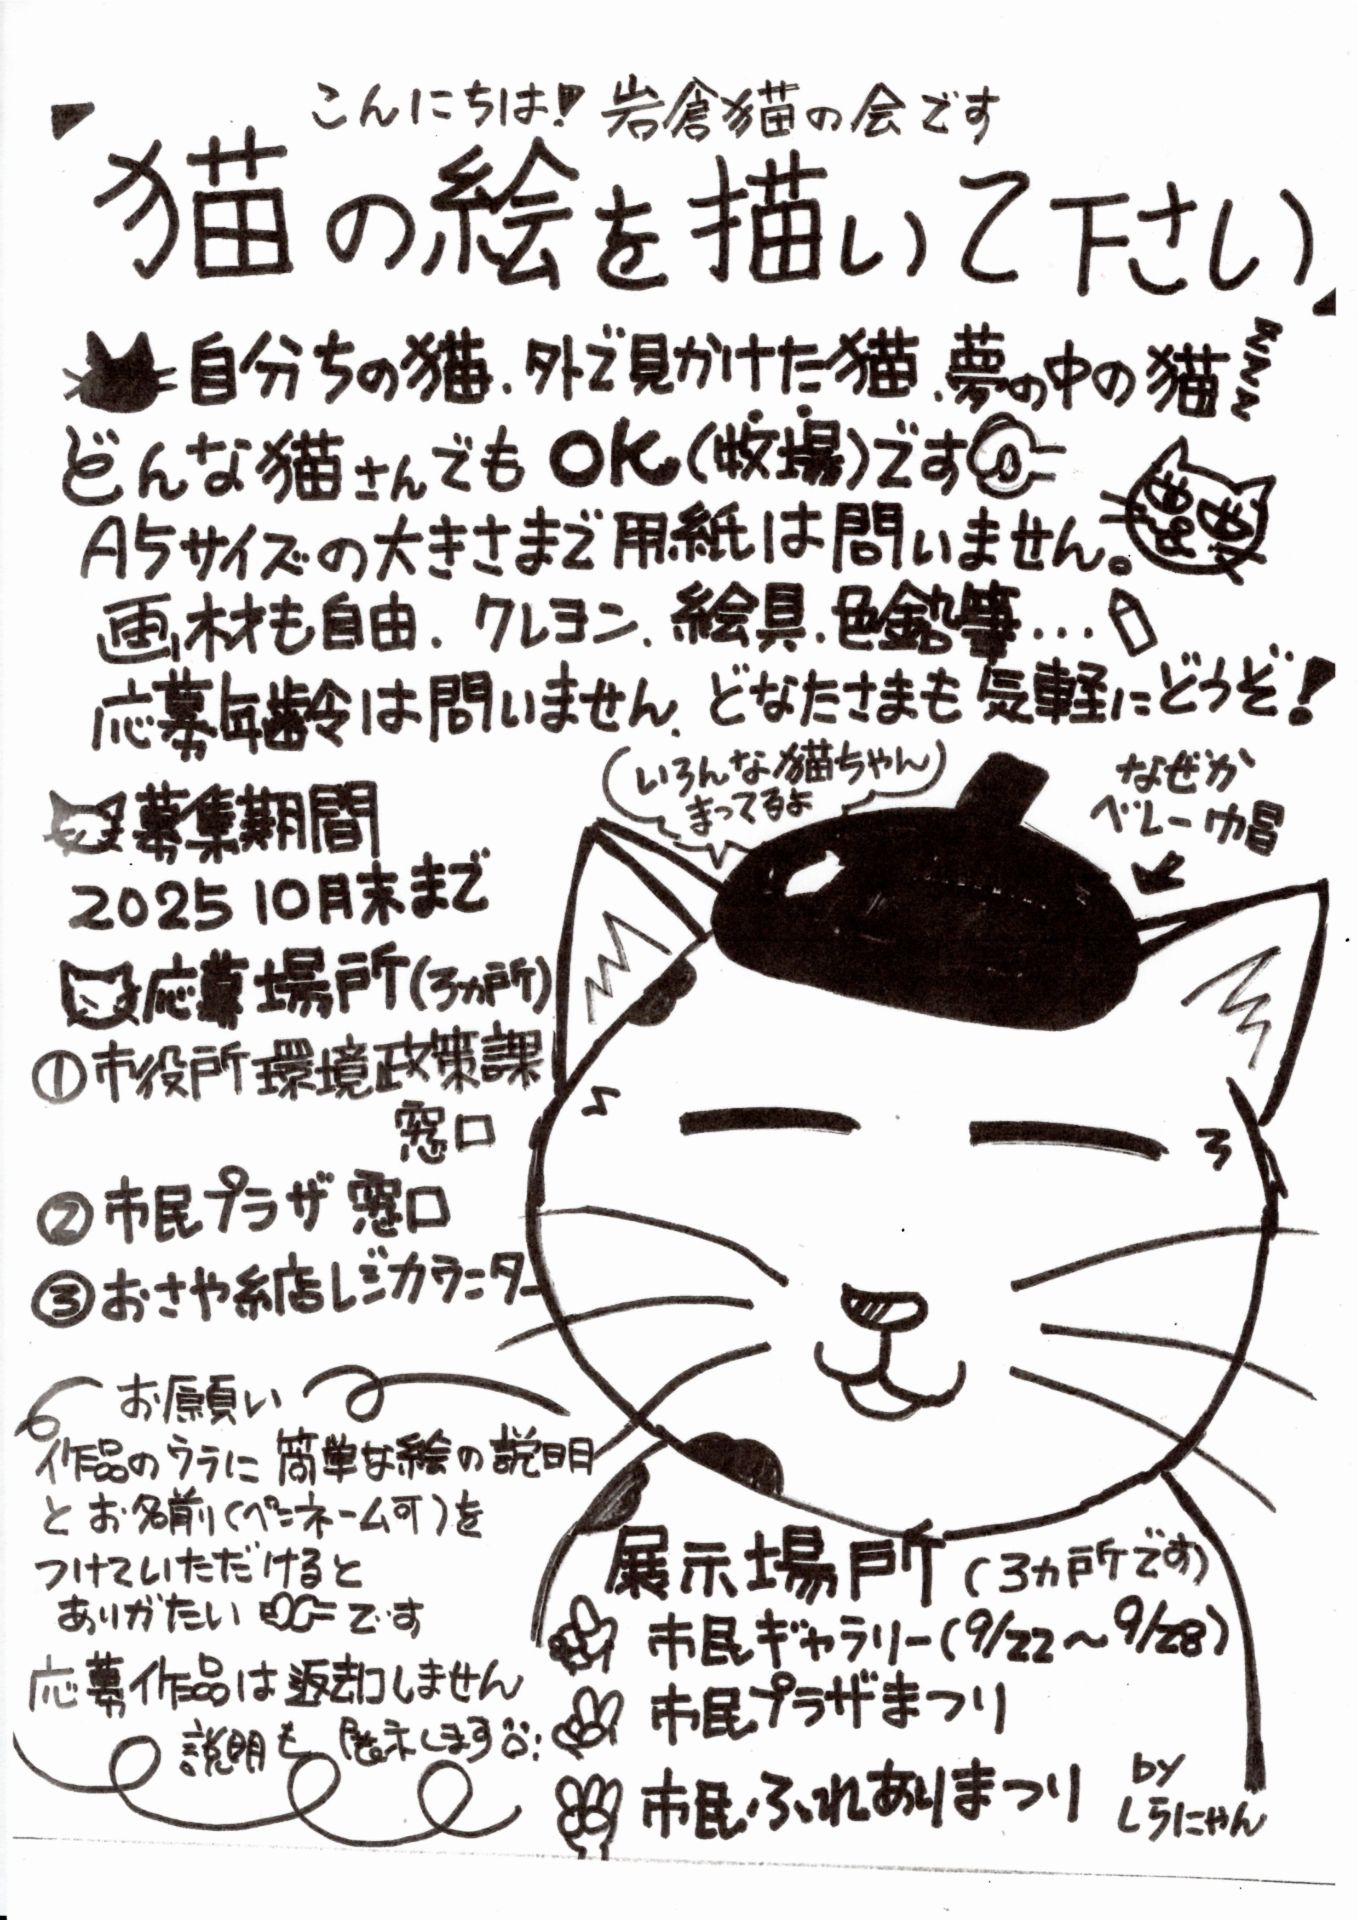 こんにちは! 岩倉猫の会です
猫の絵を描いて下さい
自分ちの猫、外で見かけた猫、夢の中の猫
どんな猫さんでもOK(牧場)です
A5サイズの大きさまで用紙は問いません。
画材も自由、クレヨン、絵具、色鉛筆…
応募年齢は問いません、どなたさまも気軽にどうぞ!
いろんな猫ちゃん
まってるよ
なぜか
ベレー帽
募集期間
2025 10月末まで
応募場所(3ヵ所)
①市役所環境政策課
窓口
②市民プラザ窓口
③おさや糸店レジカウンター
お願い
作品のウラに簡単な絵の説明
とお名前(ペンネーム可)を
つけていただけると
ありがたいです
応募作品は返却しません
説明も展示します
展示場所(3ヵ所です)
市民ギャラリー(9/22〜9/28)
市民プラザまつり
市民ふれあいまつり
by
しらにゃん